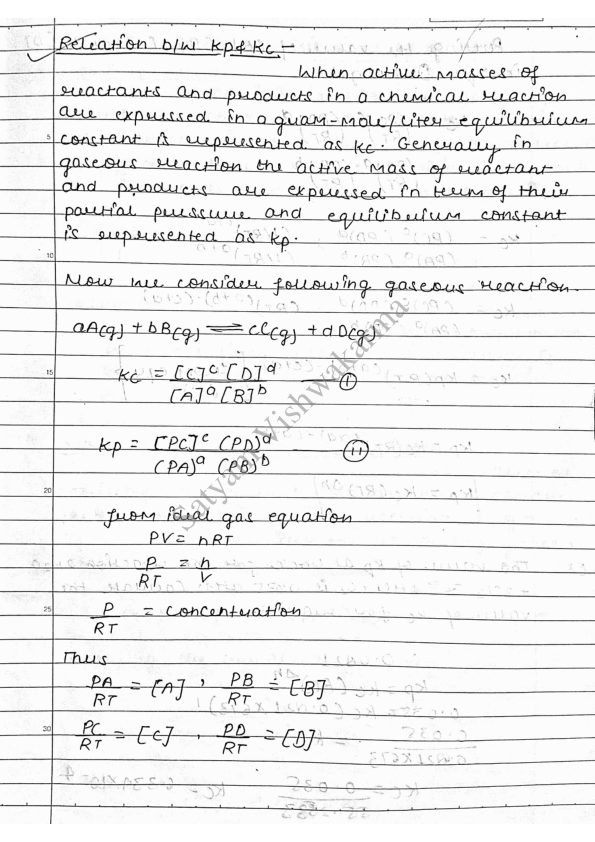 Relation b/w Kp & Kc :-
When active masses of
reactants and products in a chemical reaction
are expressed in a gram-mole/liter equilibrium
constant is represented as Kc. Generally in
gaseous reaction the active mass of reactant
and products are expressed in term of their
partial pressure and equilibrium constant
is represented as Kp.
Now we consider following gaseous reaction.
aA(g) + bB(g) ⇌ cC(g) + dD(g)
Kc = [C]^c [D]^d / [A]^a [B]^b — (i)
Kp = [PC]^c (PD)^d / (PA)^a (PB)^b — (ii)
from ideal gas equation
PV = nRT
P/RT = n/V
P/RT = concentration
Thus
PA/RT = [A] , PB/RT = [B]
PC/RT = [C] , PD/RT = [D]
Satyam Vishwakarma
5
10
15
20
25
30